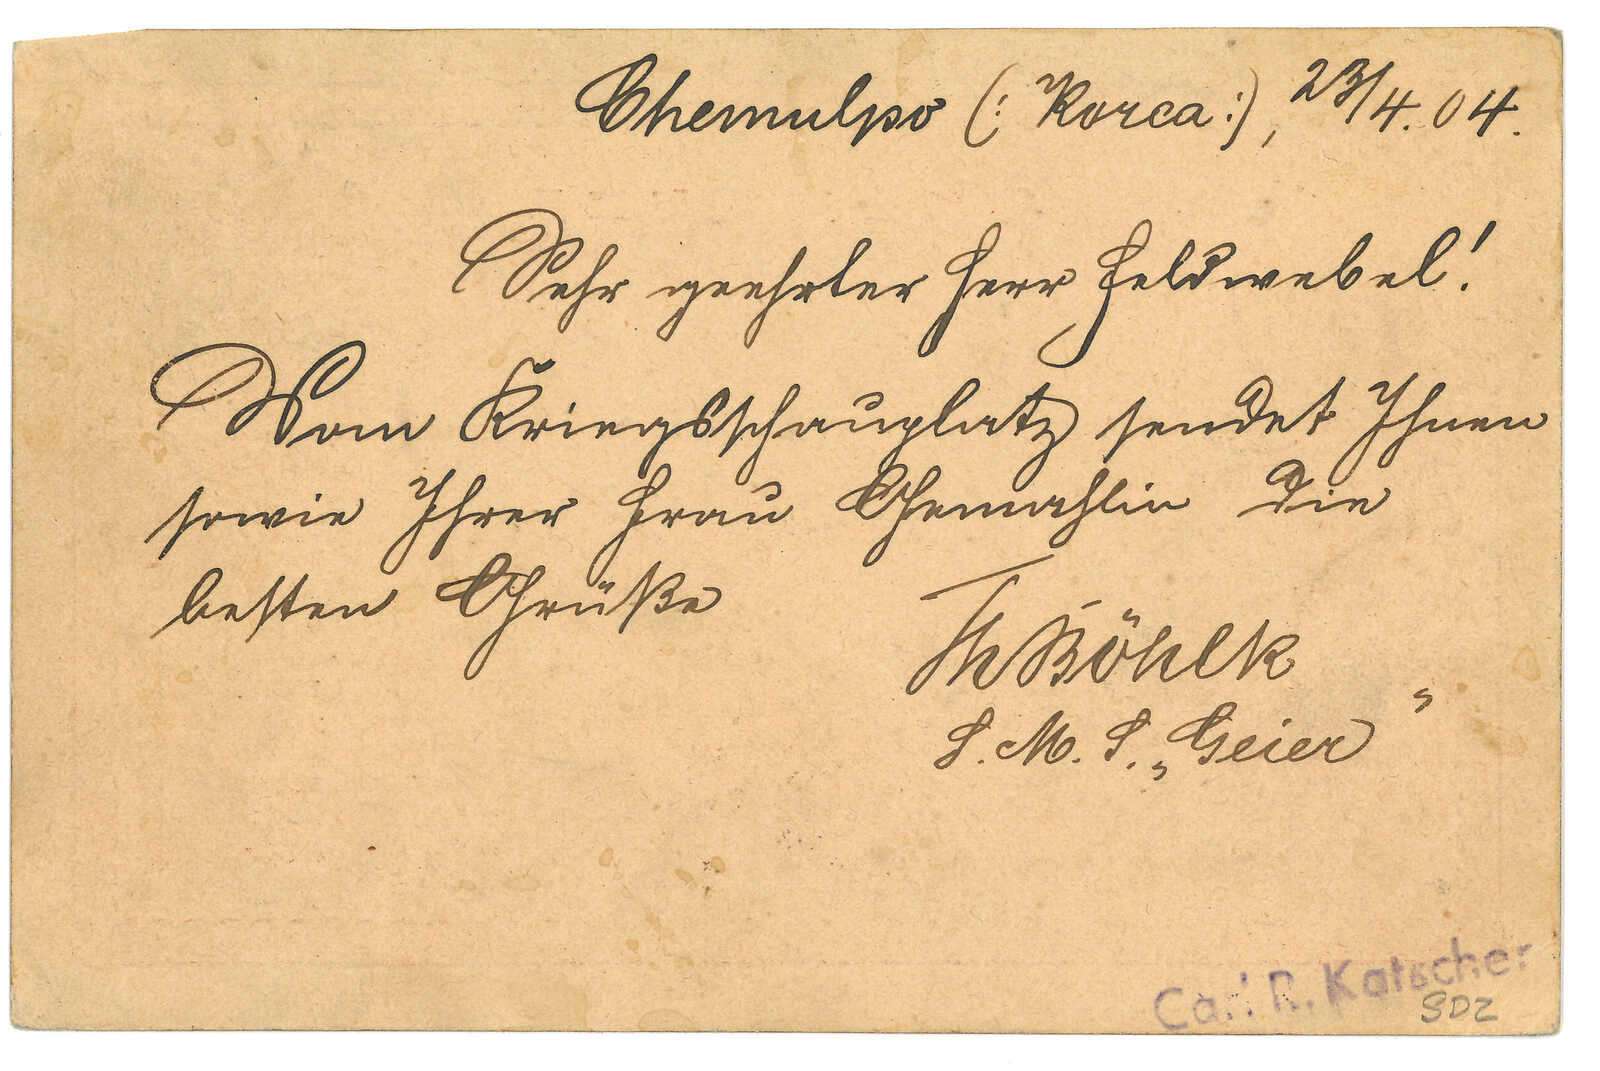 Chemulpo (: Korea :), 23/4. 04.
Sehr geehrter Herr Feldwebel!
Vom Kriegsschauplatz sendet Ihnen
sowie Ihrer Frau Gemahlin die
besten Grüße
Th Böhlk
S. M. S. „Geier"
Carl R. Katscher